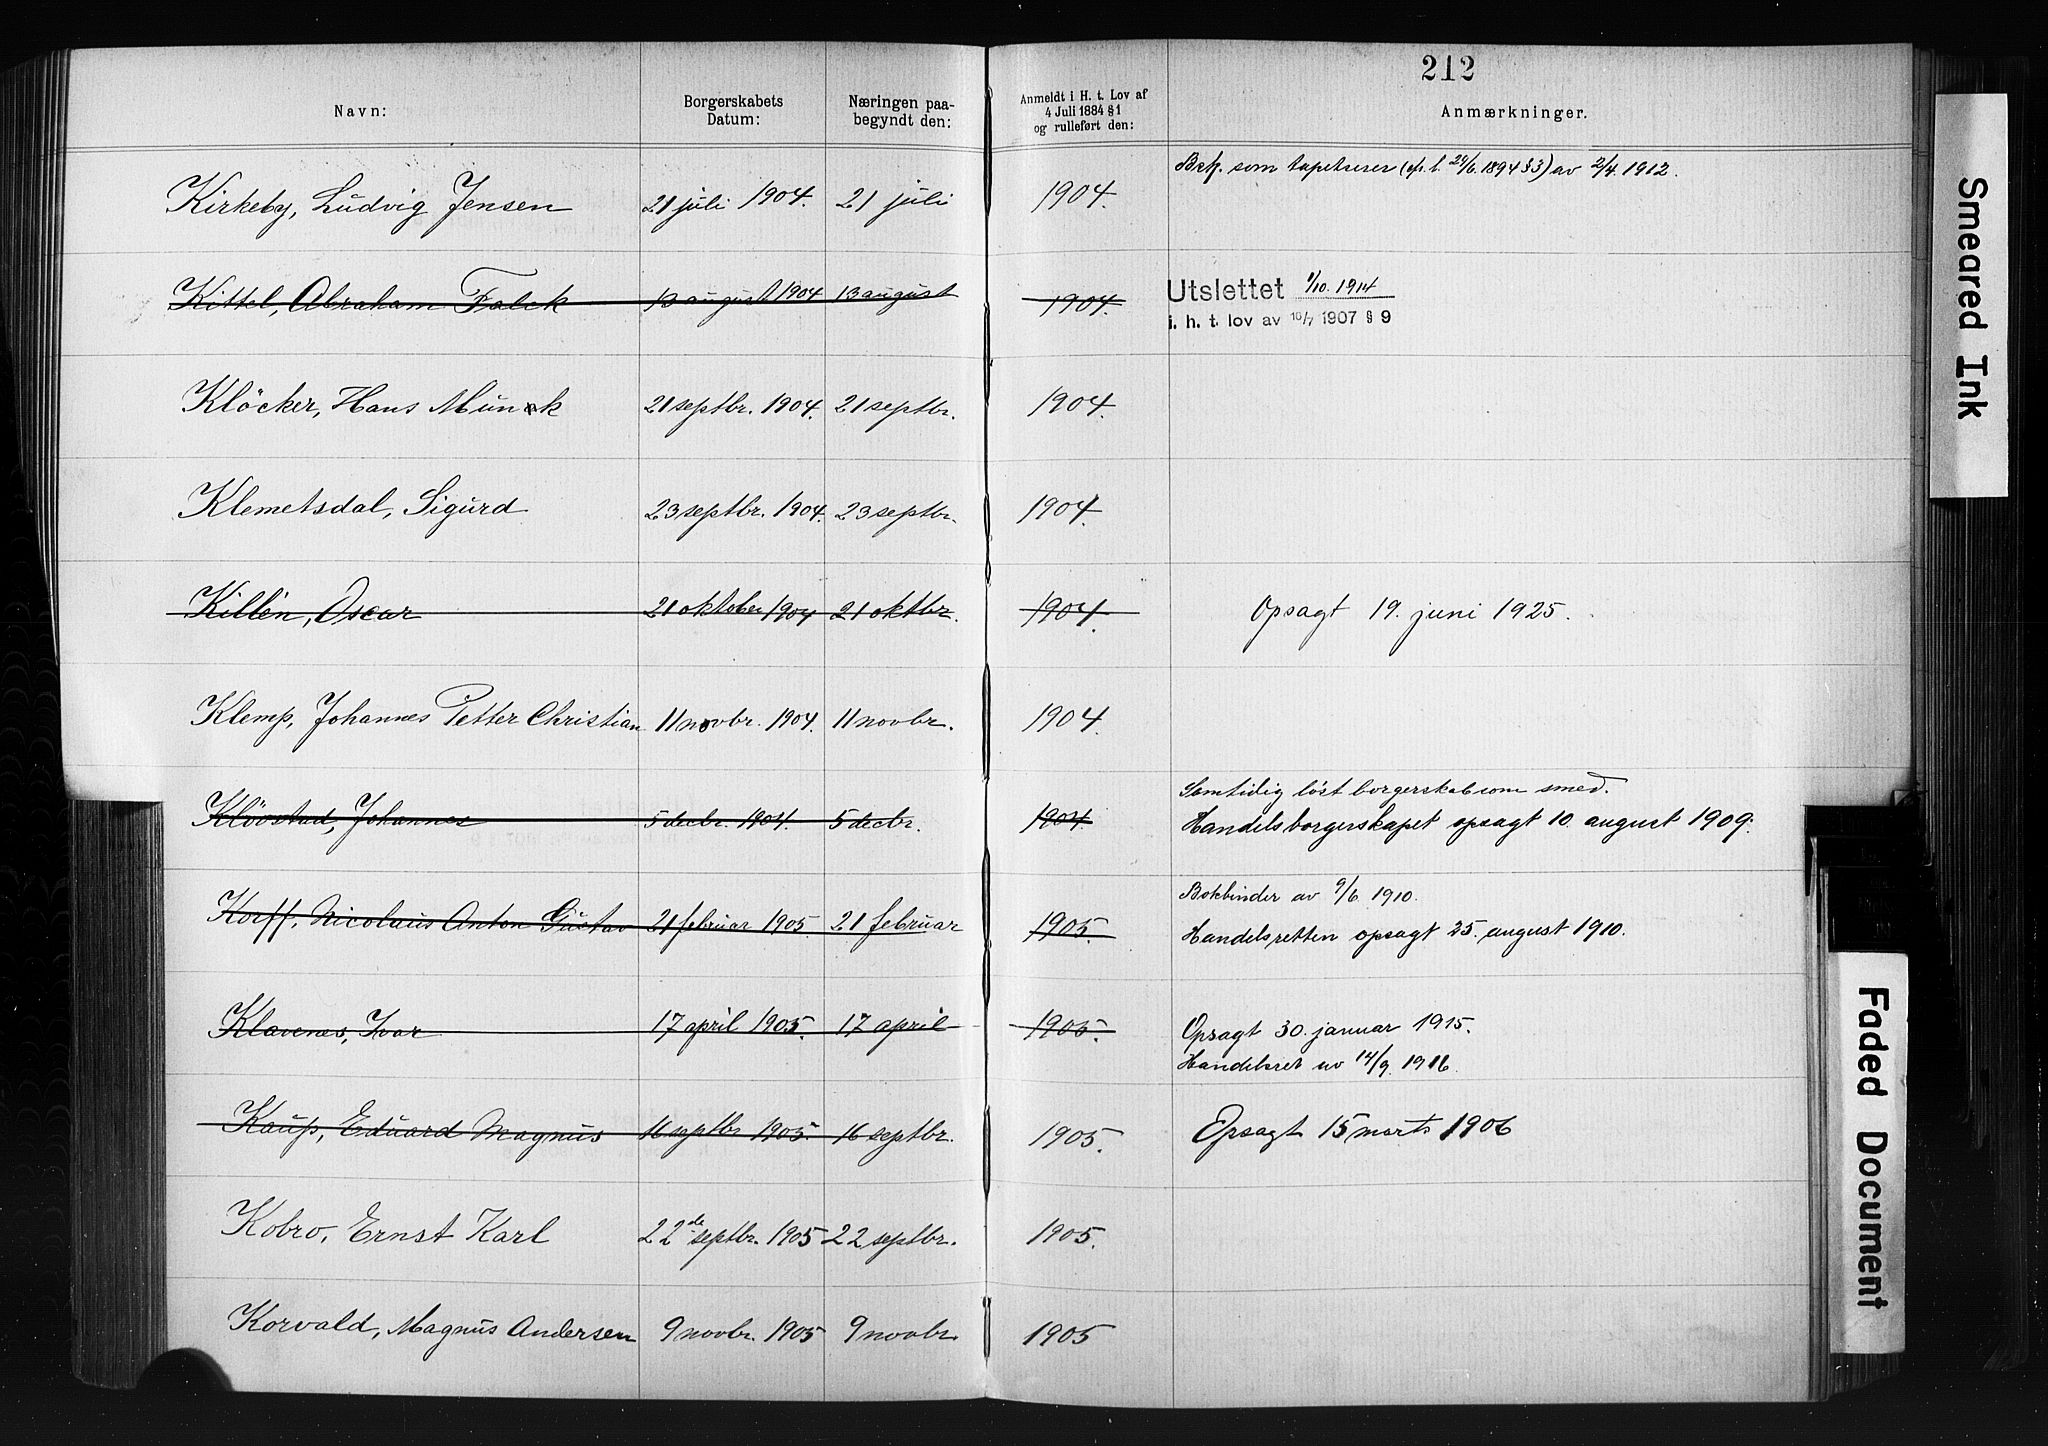 212
Navn: Borgerskabets Datum: Næringen paa-begyndt den: Anmeldt i H. t. Lov af 4 Juli 1884 § 1 og rulleført den: Anmærkninger.
som tapetserer 1894 § 3) av 2/4. 1912.
Kirkeby, Ludvig Jensen 21 juli 1904. 21 juli 1904.
Kittel, Abraham Falck 13 august 1904 13 august 1904. Utslettet 1/10. 1914
i. h. t. lov av 10/7 1907 § 9
Klöcker, Hans Munk 21 septbr. 1904. 21 septbr. 1904.
Klemetsdal, Sigurd 23 septbr. 1904. 23 septbr. 1904.
Killén, Oscar 21 oktober 1904 21 oktbr. 1904. Opsagt 19. juni 1925.
Klemp, Johannes Petter Christian 11 novbr. 1904. 11 novbr. 1904.
Samtidig löst borgerskab som smed.
Klövstad, Johannes 5 decbr. 1904. 5 decbr. 1904. Handelsborgerskapet opsagt 10. august 1909.
Bokbinder av 9/6 1910.
Korff, Nicolaus Anton Gustav 21 februar 1905. 21 februar 1905. Handelsretten opsagt 25. august 1910.
Klavenes, Ivar 17 april 1905. 17 april 1905. Opsagt 30. januar 1915.
Handelsret av 14/9. 1916.
Kaup, Eduard Magnus 16 septbr 1905. 16 septbr. 1905. Opsagt 15 marts 1906
Kobro, Ernst Karl 22de septbr. 1905 22 septbr. 1905.
Korvald, Magnus Andersen 9 novbr. 1905 9 novbr. 1905
Smeared Ink
Faded Document